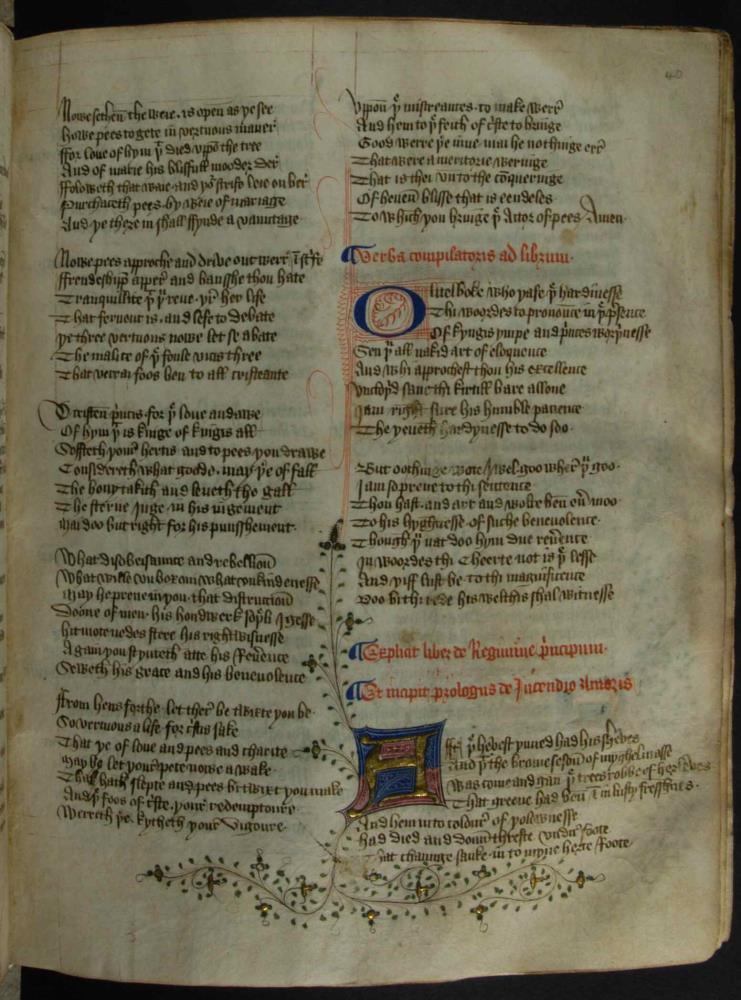 40
Nowe sethen the weie is open as ye see
Howe pees to gete in vertuous maner
ffor loue of hym þt died vpon the tree
And of marie his blisfull mooder der
ffoloweth that waie and yor strif leie on ber
Purchaceth pees by weie of mariage
And ye there in shall ffynde a vauntage
Nowe pees approche and driue out werr
ffrendeshyp apper and bansshe thou hate
Tranquillite
That feruent is and lefe to debate
ye three vertuous nowe let se abate
The malice of þe foule vices three
That verrai foos ben to all cristeante
O cristen princes for þe loue and awe
Of hym þt is kinge of kinges all
Soffteth your hertis and to pees you drawe
Considereth what goode may ye of fall
The hony takith and leueth the gall
The sterne Juge in his iugement
mai doo but right for his punisshement
What disobeisaunce and rebellion
What wille vnboxom what vnkindenesse
may he preue in you that distruccion
Doone of men his hondwerk
hit mote nedes stere his rightwisnesse
Agayn you
Seweth his grace and his beneuolence
ffrom hens forthe let ther be
So vertuous a life for cristes sake
That ye of loue and pees and charite
may
hath slepte and pees betwixt you make
And þe foos of criste your redemptoure
Werreth ye kytheth your vigoure
Vppon þe miscreantes to make werr
And hem to þe feith of criste to bringe
Good were ye mai he nothinge err
That were a meritorie werringe
That is the vnto the conqueringe
Of heuen blisse that is eendeles
To which you bringe þe Actor of pees Amen
Verba compilatoris ad librum
O litel boke who yafe þe hardinesse
Thi woordes to pronounce in þe presence
Of kyngis ympe and princes worþinesse
Sen þu all nakid art of eloquence
And whi approchest thou his excellence
Vnclothyd sauf thi kirtill bare allone
I am right sure his humble pacience
The yeueth hardynesse to do soo
But oothinge wote I wel goo wher þu goo
I am so preue to thi sentence
Thou hast and art and wolte ben euer moo
To his hyghnesse of suche beneuolence
Though þu nat doo hym due reuerence
In woordes thi cheerte not is þe lesse
And yiff lust be to thi magnificence
Doo bi thi rede his welthe shal witnesse
Explicit liber de Regimine principum
Et incipit prologus de Incendio Amoris
Aftir þt hervest inned had his sheves
And þt the broune seson of myghelmesse
Was come and gan þe trees robbe of her leves
That greene had ben in lusty fresshnes
And hem into colour of yolownesse
Had died and doun throste vndir foote
That chaunge sanke in to myne herte roote